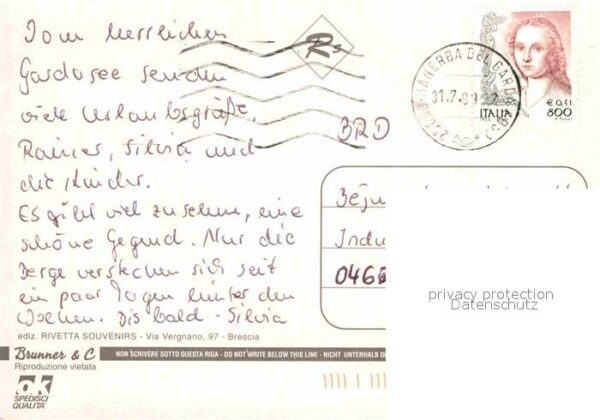 Vom herrlichen
Gardasee senden
viele Urlaubsgrüße,
Rainer, Silvia und
die Kinder.
Es gibt viel zu sehen, eine
schöne Gegend. Nur die
Berge verstecken sich seit
ein paar Tagen hinter den
Wolken. Bis bald - Silvia
ediz. RIVETTA SOUVENIRS - Via Vergnano, 97 - Brescia
Brunner & C
Riproduzione vietata
NON SCRIVERE SOTTO QUESTA RIGA - DO NOT WRITE BELOW THIS LINE - NICHT UNTERHALB D
ok
SPEDISCI
QUALITA'
Rs
MANERBA DEL GARDA
31.7.99
€ 0,41
ITALIA 800
BRD
Indu
046
privacy protection
Datenschutz